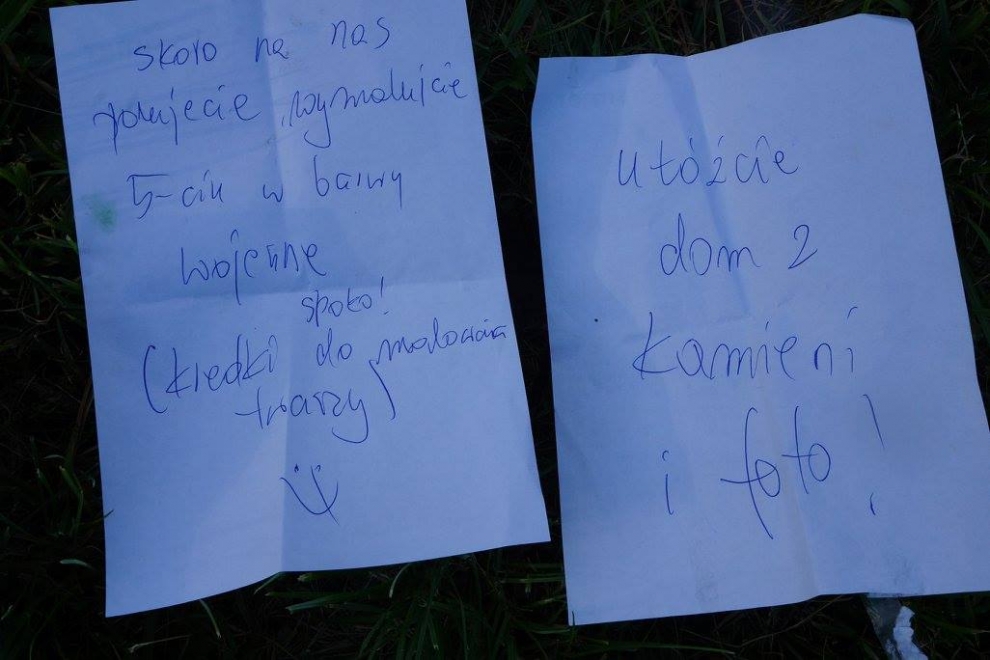 skoro na nas
polujecie, wymalujcie
5-ciu w barwy
wojenne
spoko!
(kredki do malowania
twarzy)
ułóżcie
dom 2
kamieni
i foto!